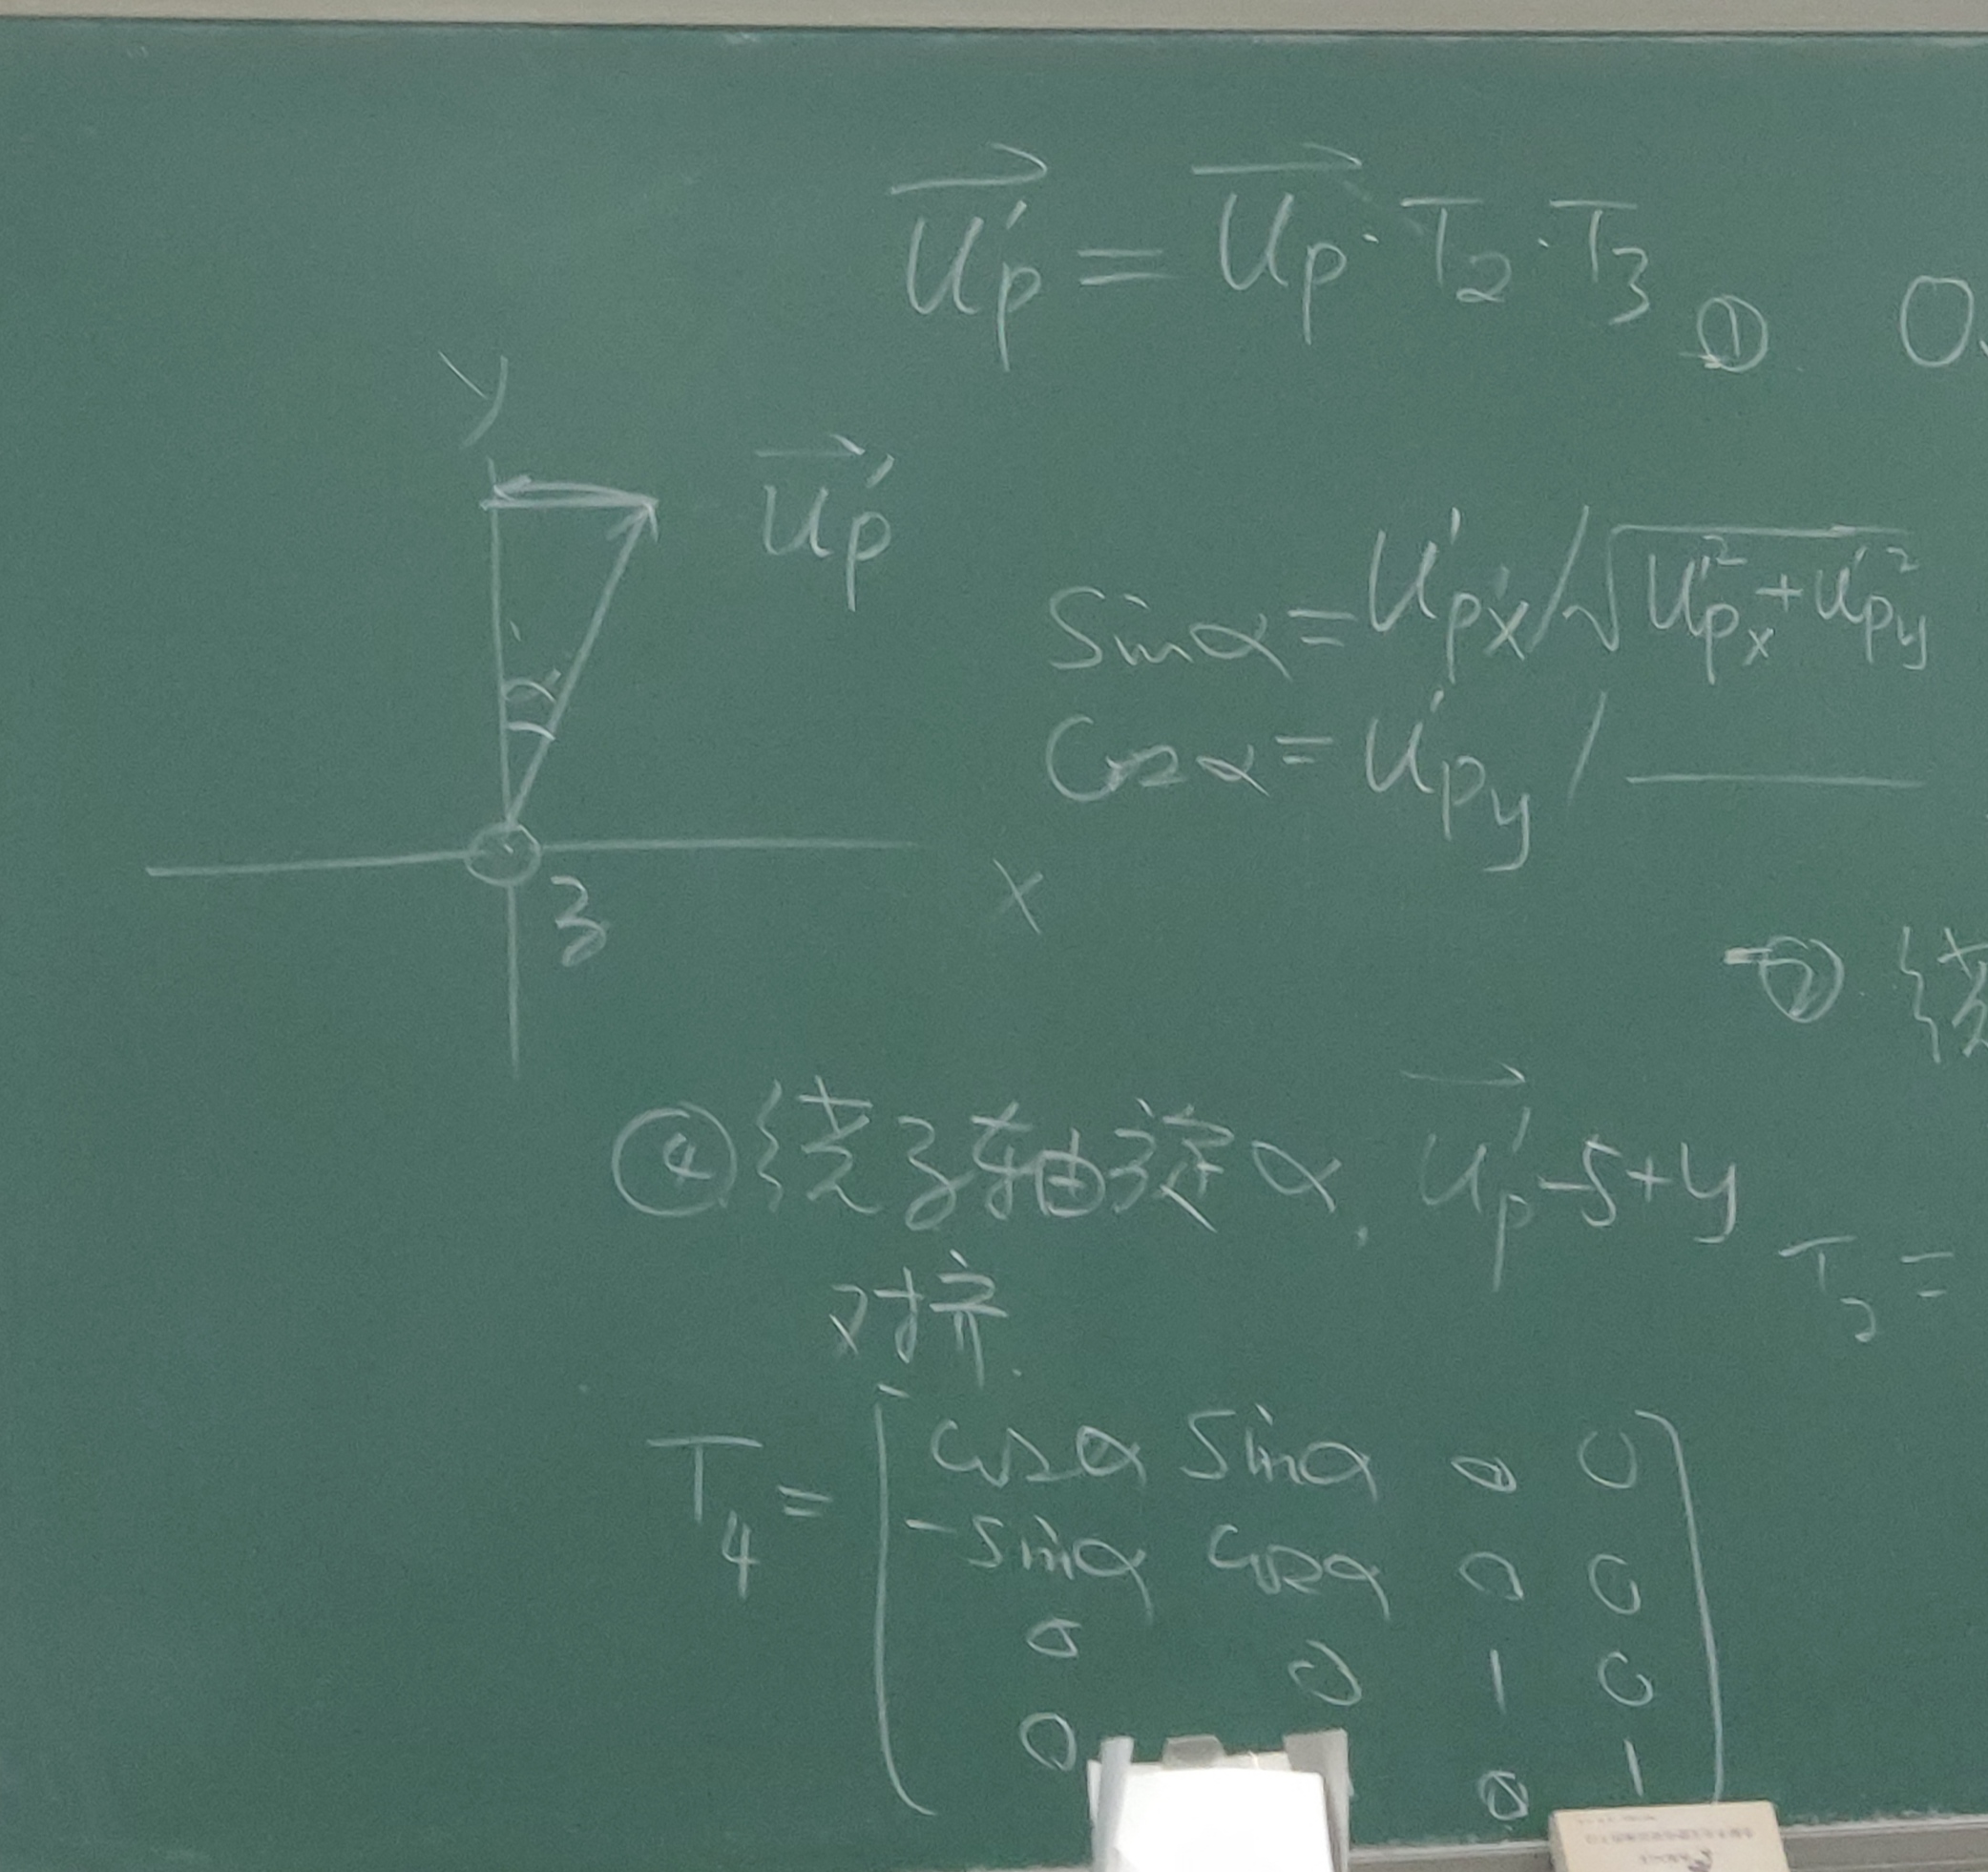 U'p = Up · T2 · T3
① O.
y
U'p
Sinα = U'px / √(U'px² + U'py²)
Cosα = U'py / ———
z
x
② 绕
④ 绕z轴旋α, U'p与+y
对齐.
T2 =
T4 =
cosα sinα 0 0
-sinα cosα 0 0
0 0 1 0
0 0 1